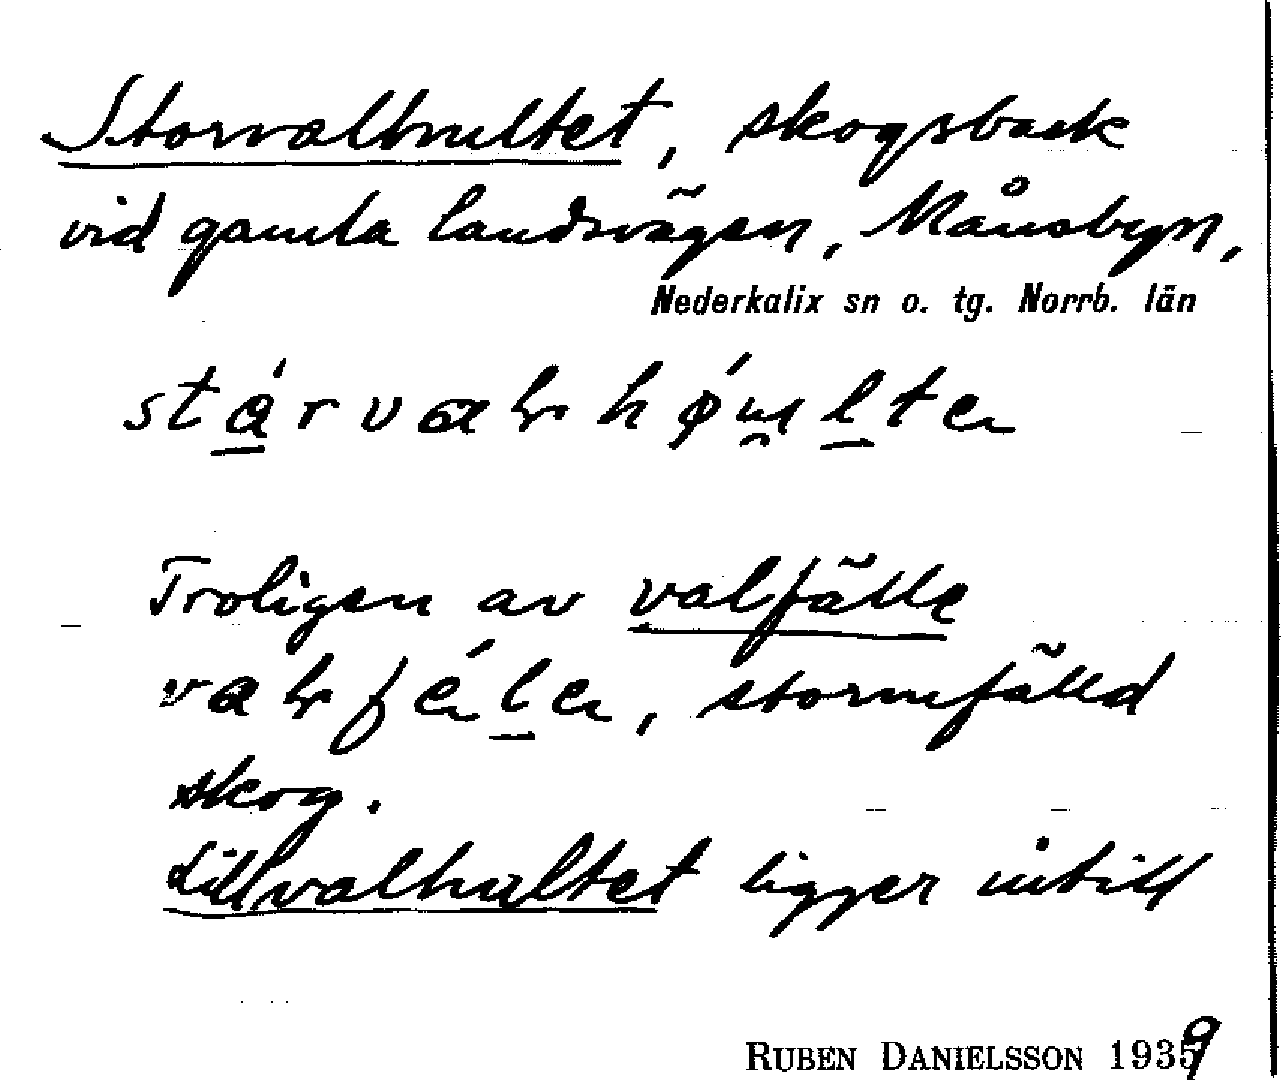 Storvalhultet, skogsback
vid gamla landsvägen, Månsbyn,
Nederkalix sn o. tg. Norrb. län
Troligen av valfälle
stormfälld
skog.
Lillvalhultet ligger intill
RUBEN DANIELSSON 1939